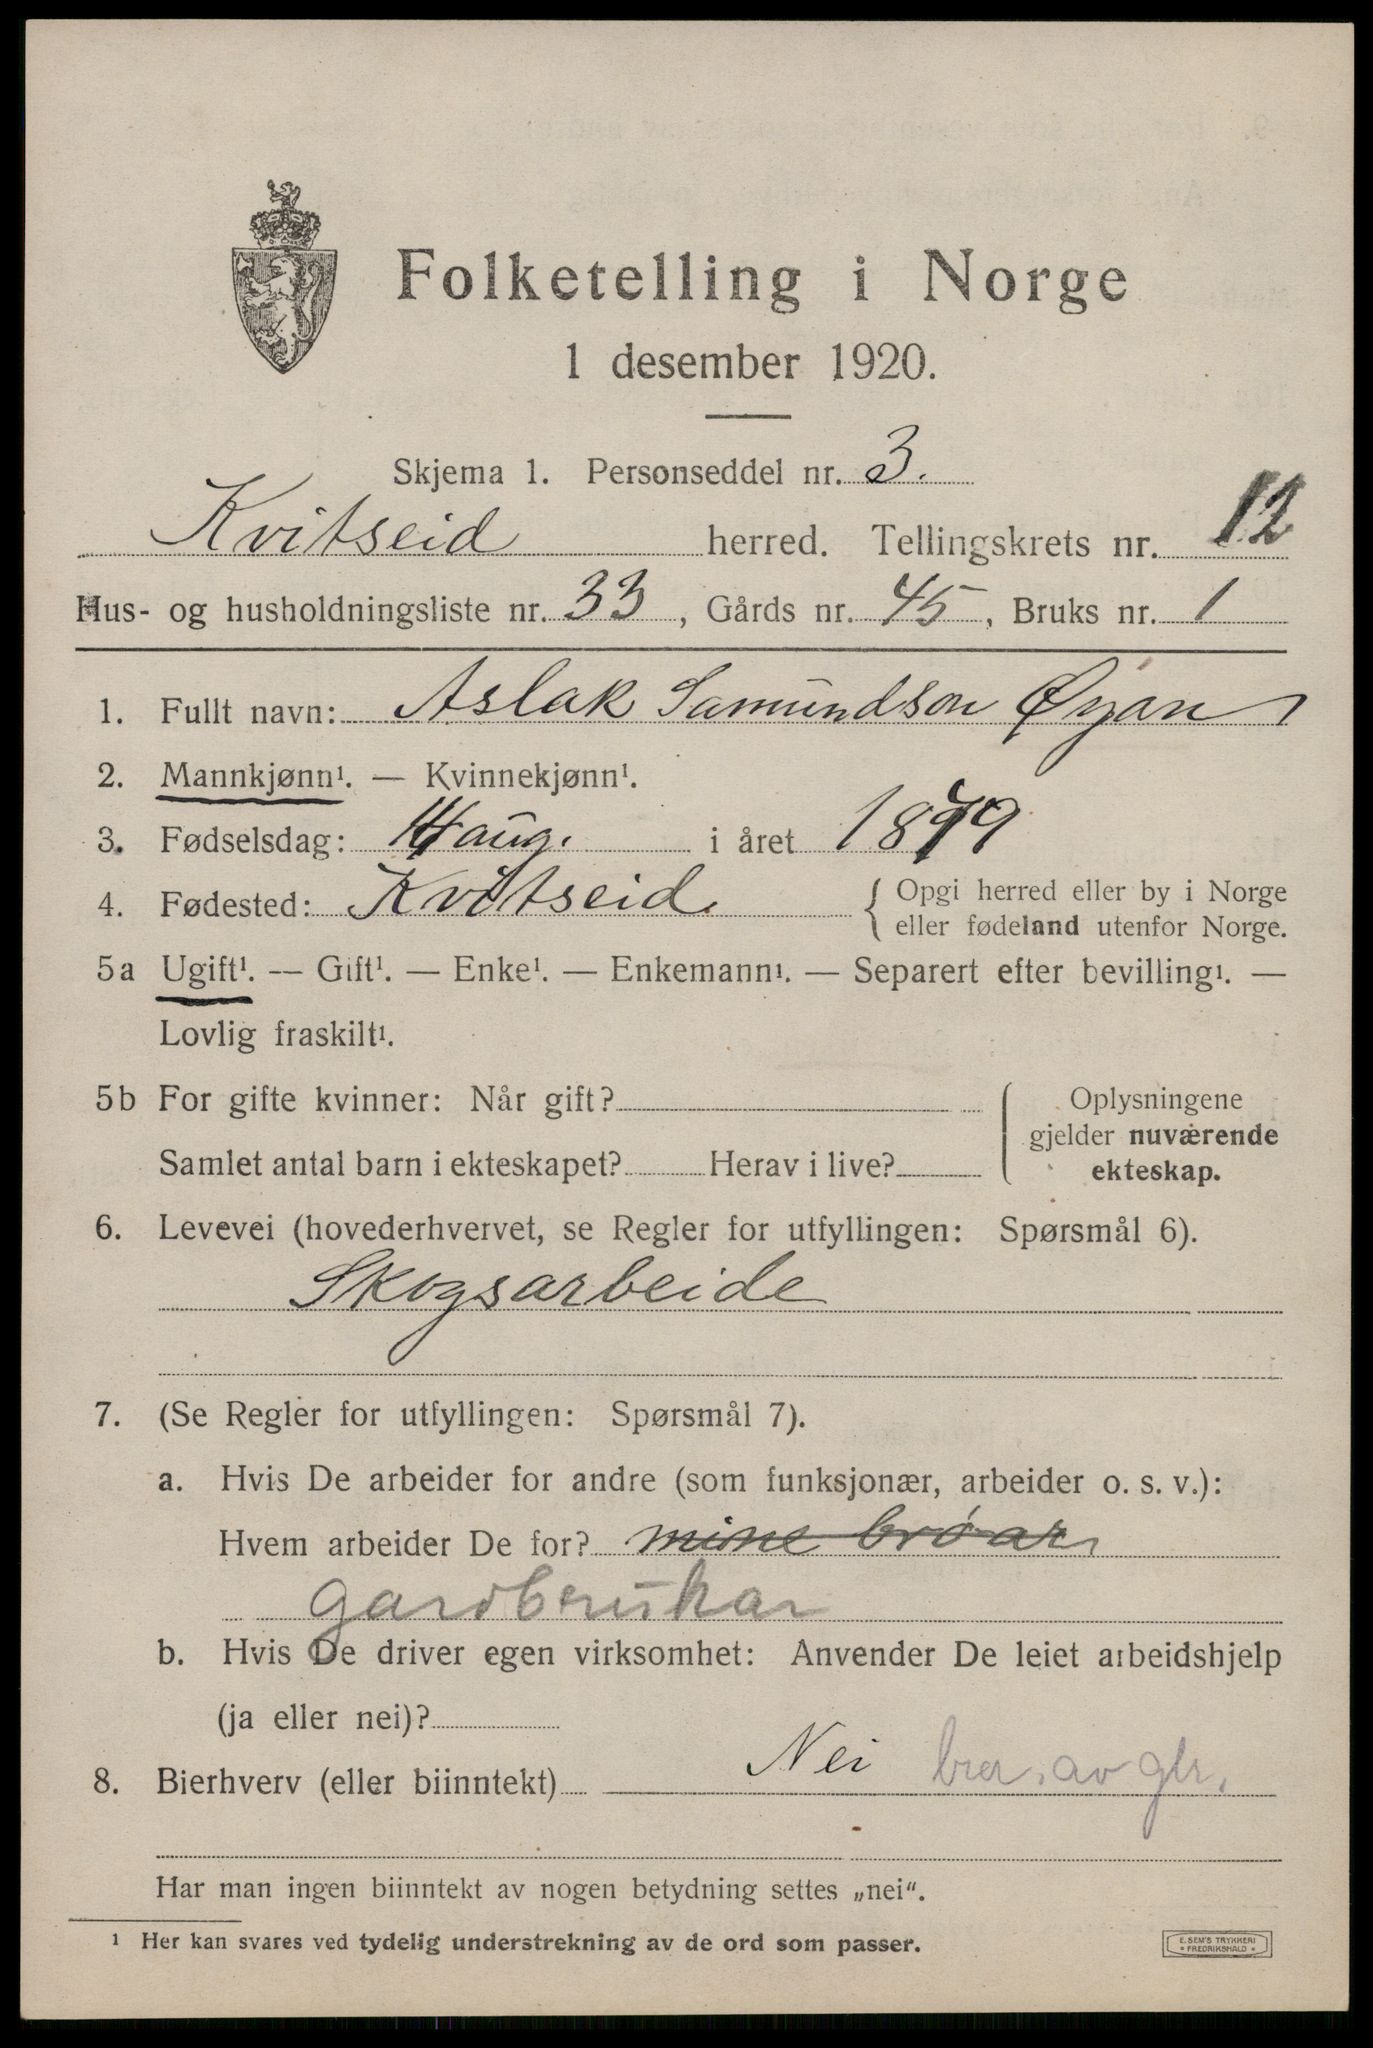 Folketelling i Norge
1 desember 1920.
Skjema 1. Personseddel nr. 3.
Kvitseid herred. Tellingskrets nr. 12
Hus- og husholdningsliste nr. 33, Gårds nr. 45, Bruks nr. 1
1. Fullt navn: Aslak Samundson Øyan
2. Mannkjønn¹. — Kvinnekjønn¹.
3. Fødselsdag: aug. i året 1879
4. Fødested: Kvitseid. { Opgi herred eller by i Norge
eller fødeland utenfor Norge.
5a Ugift¹. — Gift¹. — Enke¹. — Enkemann¹. — Separert efter bevilling¹. —
Lovlig fraskilt¹.
5b For gifte kvinner: Når gift? { Oplysningene
gjelder nuværende
Samlet antal barn i ekteskapet? Herav i live? ekteskap.
6. Levevei (hovederhvervet, se Regler for utfyllingen: Spørsmål 6).
Skogsarbeide
7. (Se Regler for utfyllingen: Spørsmål 7).
a. Hvis De arbeider for andre (som funksjonær, arbeider o. s. v.):
Hvem arbeider De for? mine brøar
gardbrukar
b. Hvis De driver egen virksomhet: Anvender De leiet arbeidshjelp
(ja eller nei)?
8. Bierhverv (eller biinntekt) Nei bror av gbr.
Har man ingen biinntekt av nogen betydning settes „nei“.
¹ Her kan svares ved tydelig understrekning av de ord som passer.
E. SEM'S TRYKKERI
FREDRIKSHALD